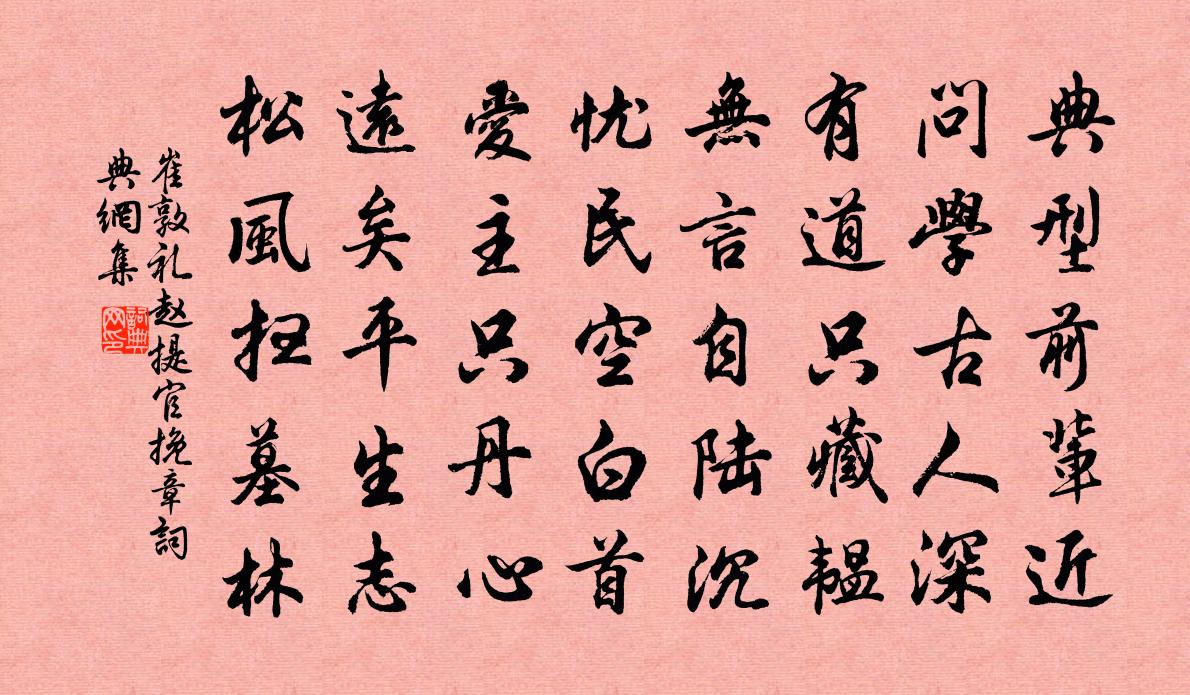 典型前輩近
問學古人深
有道只藏韞
無言自陆沉
忧民空白首
愛主只丹心
遠矣平生志
松風扫墓林
崔敦礼赵提官挽章詞
典網集
詞典
网印